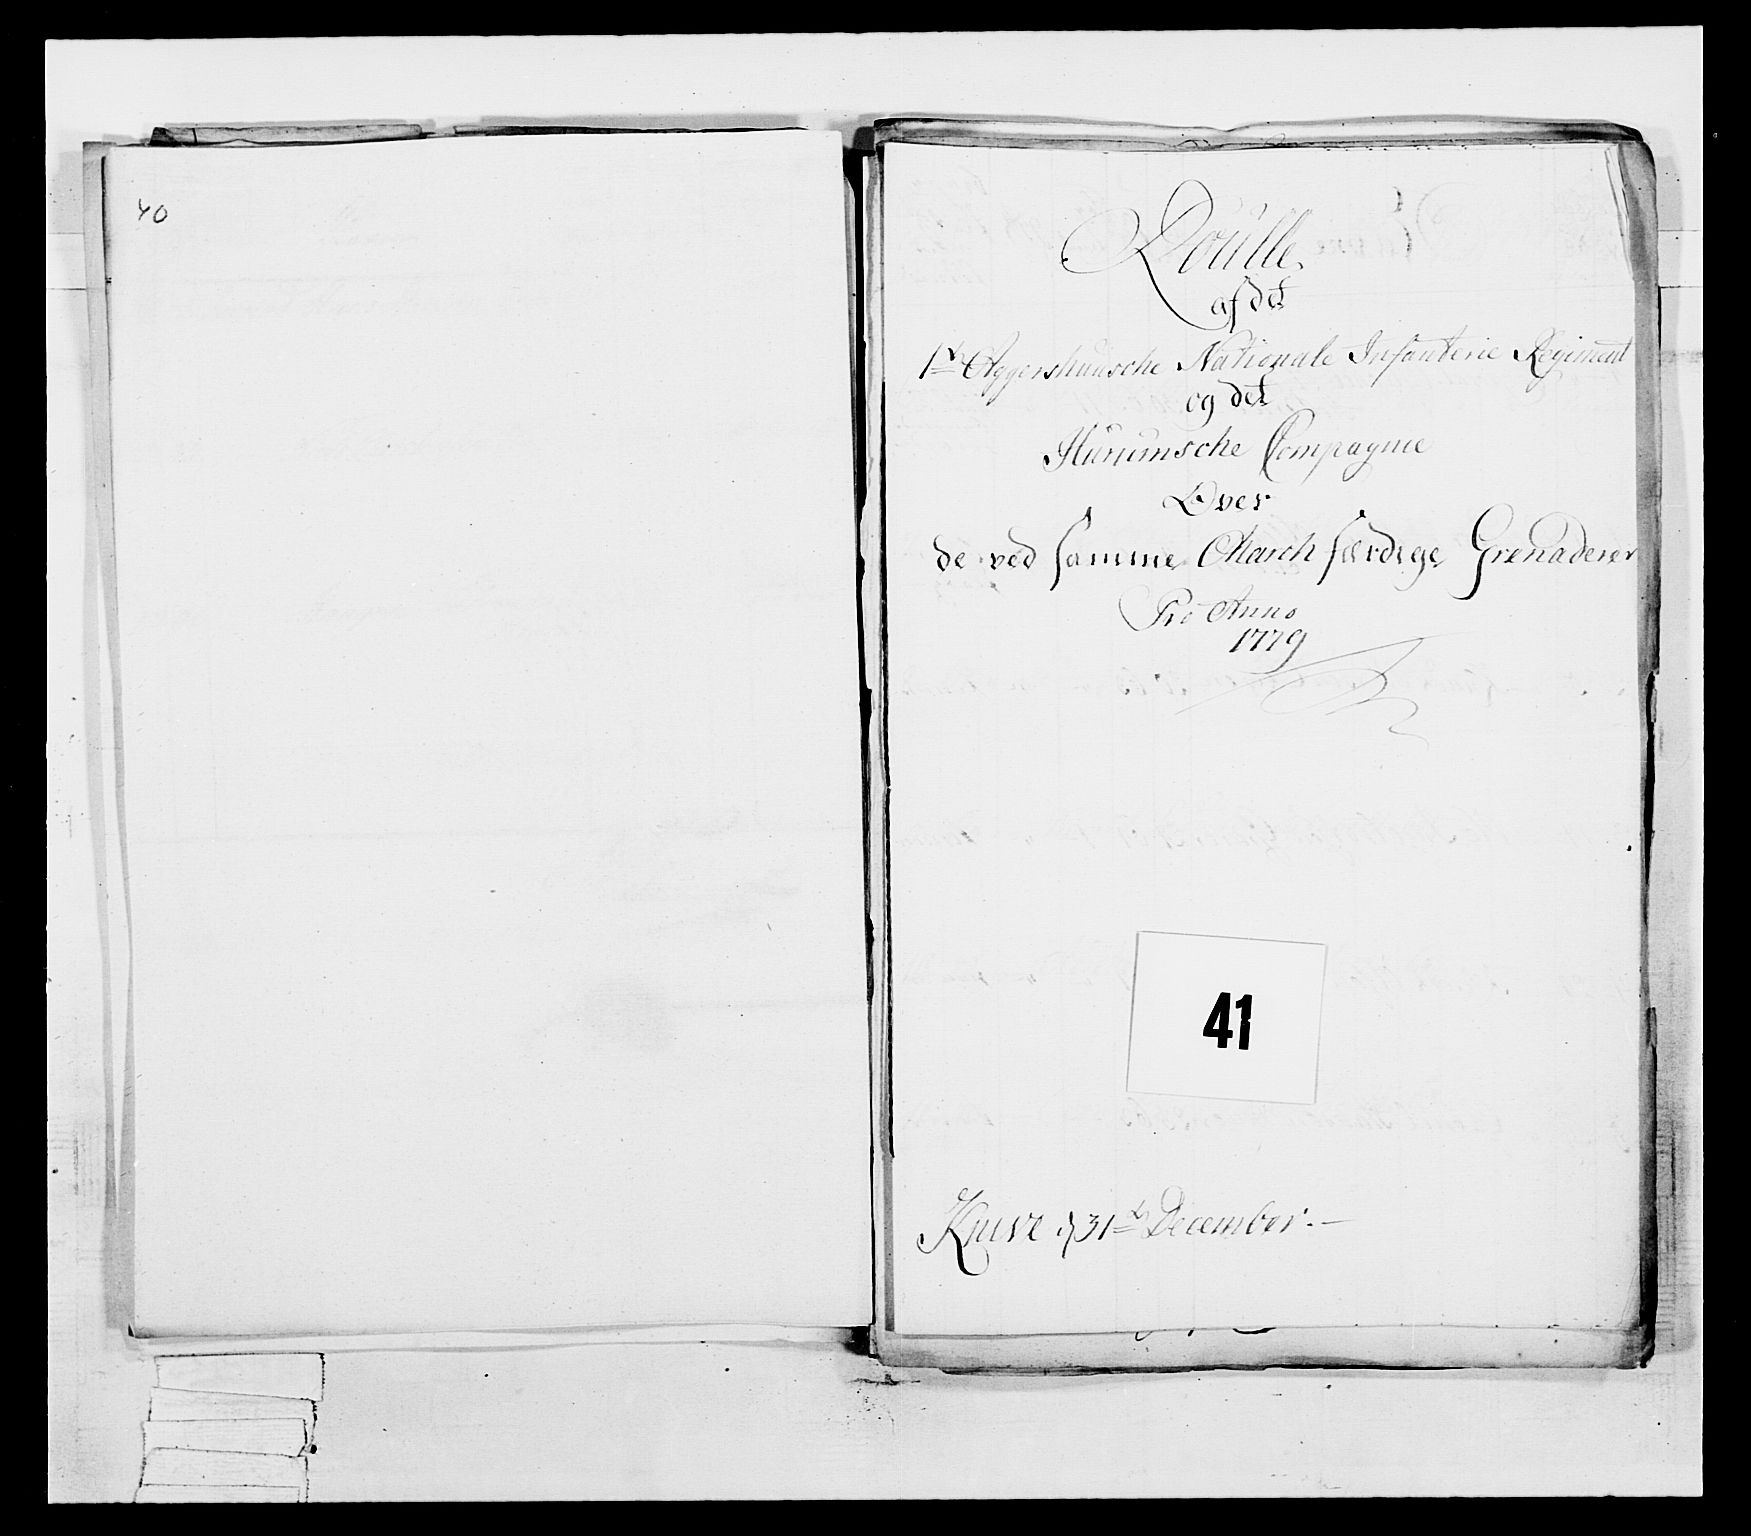 40
Roülle
af det
1te Aggershuusche Nationale Infanterie Regiment
og det
Hurumsche Compagnie
Over
de ved samme March færdige Grenaderer
Pro Anno
1779
41
d 31te December.